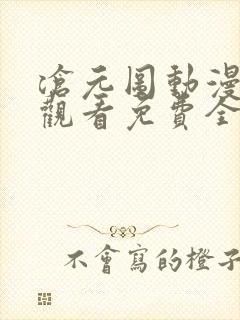 滄元圖動漫
觀看免費全
不會寫的橙子